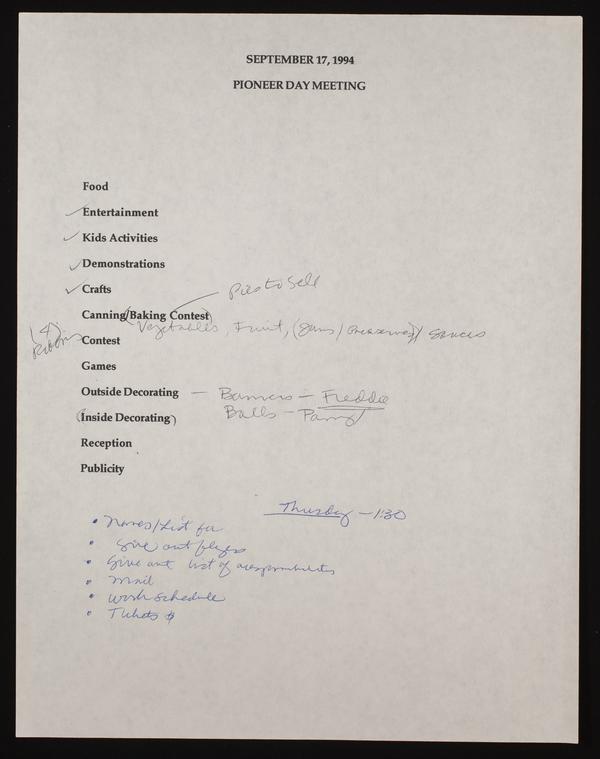 SEPTEMBER 17, 1994
PIONEER DAY MEETING
Food
Entertainment
Kids Activities
Demonstrations
Crafts
Pies to Sell
Canning/Baking Contest
Vegetables, Fruit, (Jams/Preserves)/ Sauces
(4) Ribbons
Contest
Games
Outside Decorating — Banners — Freddie
(Inside Decorating) Balls — Pam
Reception
Publicity
Thursday — 1:30
• Names/List for
• Give out flyers
• Give out list of responsibilities
• Mail
• Work Schedule
• Tickets $